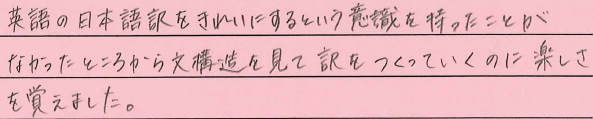 英語の日本語訳をきれいにするという意識を持ったことが
なかったところから文構造を見て訳をつくっていくのに楽しさ
を覚えました。